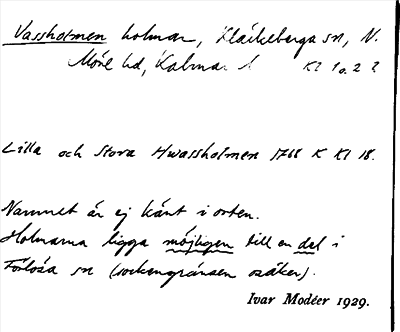 Vassholmen holmar, Kläckeberga sn, N.
Möre hd, Kalmar l Kl 1 o. 2 ?
Lilla och Stora Hwassholmen 1766 K Kl 18.
Namnet är ej känt i orten.
Holmarna ligga möjligen till en del i
Förlösa sn (sockengränsen osäker).
Ivar Modéer 1929.